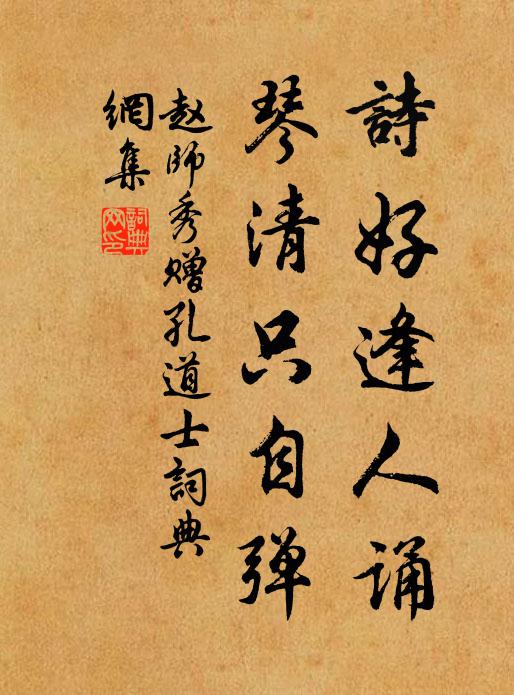 詩好逢人诵
琴清只自弹
赵師秀赠孔道士詞典
網集
詞典
网印